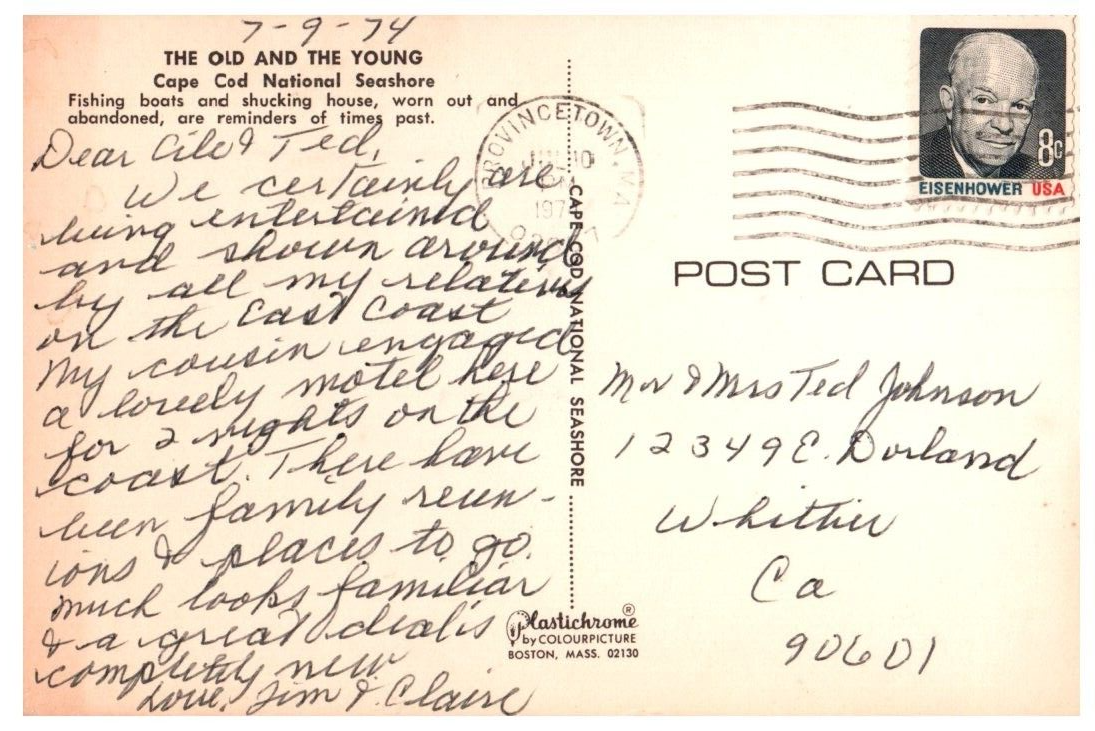 7-9-74
THE OLD AND THE YOUNG
Cape Cod National Seashore
Fishing boats and shucking house, worn out and
abandoned, are reminders of times past.
Dear Cile & Ted,
We certainly are
being entertained
and shown around
by all my relatives
on the East Coast
My cousin engaged
a lovely motel here
for 2 nights on the
coast. There have
been family reun-
ions & places to go.
Much looks familiar
& a great deal is
completely new.
Love, Jim & Claire
CAPE COD NATIONAL SEASHORE
Plastichrome ®
by COLOURPICTURE
BOSTON, MASS. 02130
PROVINCETOWN, MA
JUL 10
197
8c
EISENHOWER USA
POST CARD
Mr & Mrs Ted Johnson
12349 E. Dorland
Whittier
Ca
90601